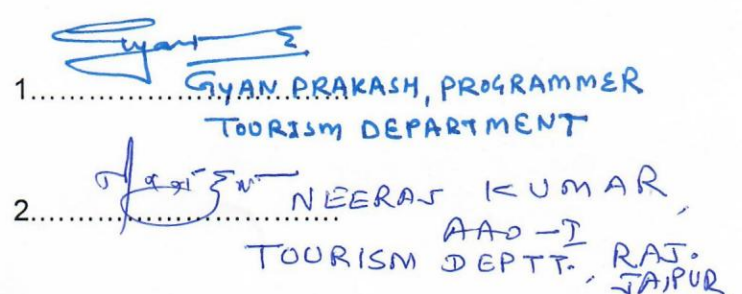 1.................................
GYAN PRAKASH, PROGRAMMER
TOURISM DEPARTMENT
2.................................
NEERAJ KUMAR,
AAO-I
TOURISM DEPTT., RAJ.
JAIPUR